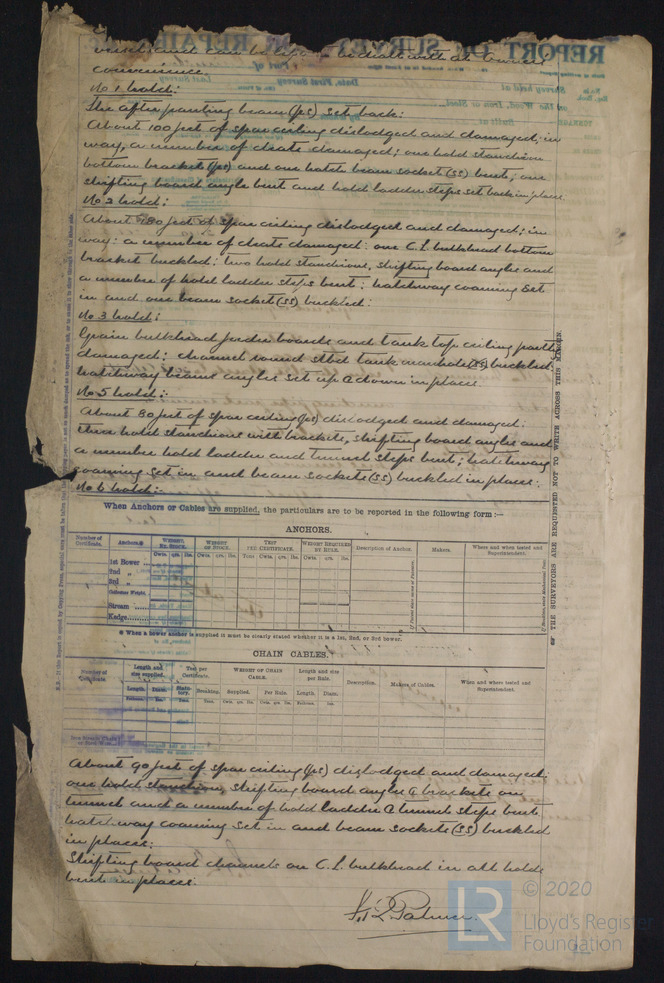 vessel and can be dealt with at owners
convenience.
No 1 hold:
The after panting beam (ps) set back:
About 100 feet of spar ceiling dislodged and damaged; in
way, a number of cleats damaged; one hold stanchion
bottom bracket (ps) and one hatch beam socket (ss) bent; one
shifting board angle bent and hold ladder steps set back in places.
No 2 hold:
About 180 feet of spar ceiling dislodged and damaged; in
way: a number of cleats damaged: one C.L. bulkhead bottom
bracket buckled: two hold stanchions, shifting board angles and
a number of hold ladder steps bent: hatchway coaming set
in and one beam socket (ss) buckled:
No 3 hold:
Grain bulkhead feeder boards and tank top ceiling partly
damaged: channel round stbd tank manhole (ss) buckled
hatchway beams angles set up & down in places.
No 5 hold:
About 80 feet of spar ceiling (ps) dislodged and damaged:
three hold stanchions with brackets, shifting board angles and
a number hold ladder and tunnel steps bent; hatchway
coaming set in and beam sockets (ss) buckled in places:
No 6 hold:-
When Anchors or Cables are supplied, the particulars are to be reported in the following form :—
ANCHORS.
Number of Certificate. Anchors. WEIGHT, EX. STOCK. WEIGHT OF STOCK. TEST PER CERTIFICATE. WEIGHT REQUIRED BY RULE. Description of Anchor. Makers. Where and when tested and Superintendent.
Cwts. qrs. lbs. Cwts. qrs. lbs. Tons Cwt. qrs. lbs. Cwts. qrs. lbs.
1st Bower
2nd „
3rd „
Collective Weight.
Stream
Kedge
When a bower anchor is supplied it must be clearly stated whether it is a 1st, 2nd, or 3rd bower.
CHAIN CABLES.
Number of Certificate. Length and size supplied. Test per Certificate. WEIGHT OF CHAIN CABLE. Length and size per Rule. Description. Makers of Cables. When and where tested and Superintendent.
Length. Diam. Statutory. Breaking. Supplied. Per Rule. Length. Diam.
About 90 feet of spar ceiling (ps) dislodged and damaged;
one hold stanchion, shifting board angles & brackets on
tunnel and a number of hold ladder & tunnel steps bent
hatchway coaming set in and beam sockets (ss) buckled
in places:
Shifting board channels on C.L. bulkhead in all holds
bent in places.
Palmer
THE SURVEYORS ARE REQUESTED NOT TO WRITE ACROSS THIS MARGIN.
LR
© 2020
Lloyd's Register
Foundation